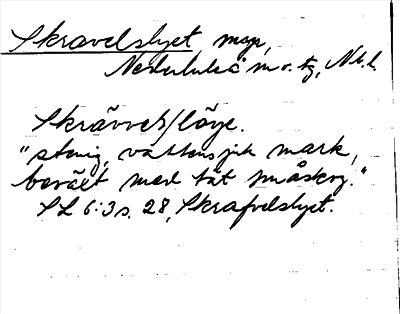 Skravelslyet myr,
Nederluleå m o. tg, Nb. l.
Skrävvels/løye.
"stenig, vattensjuk mark,
beväxt med tät småskog."
SL 6:3 s. 28, Skrafvelslyet.